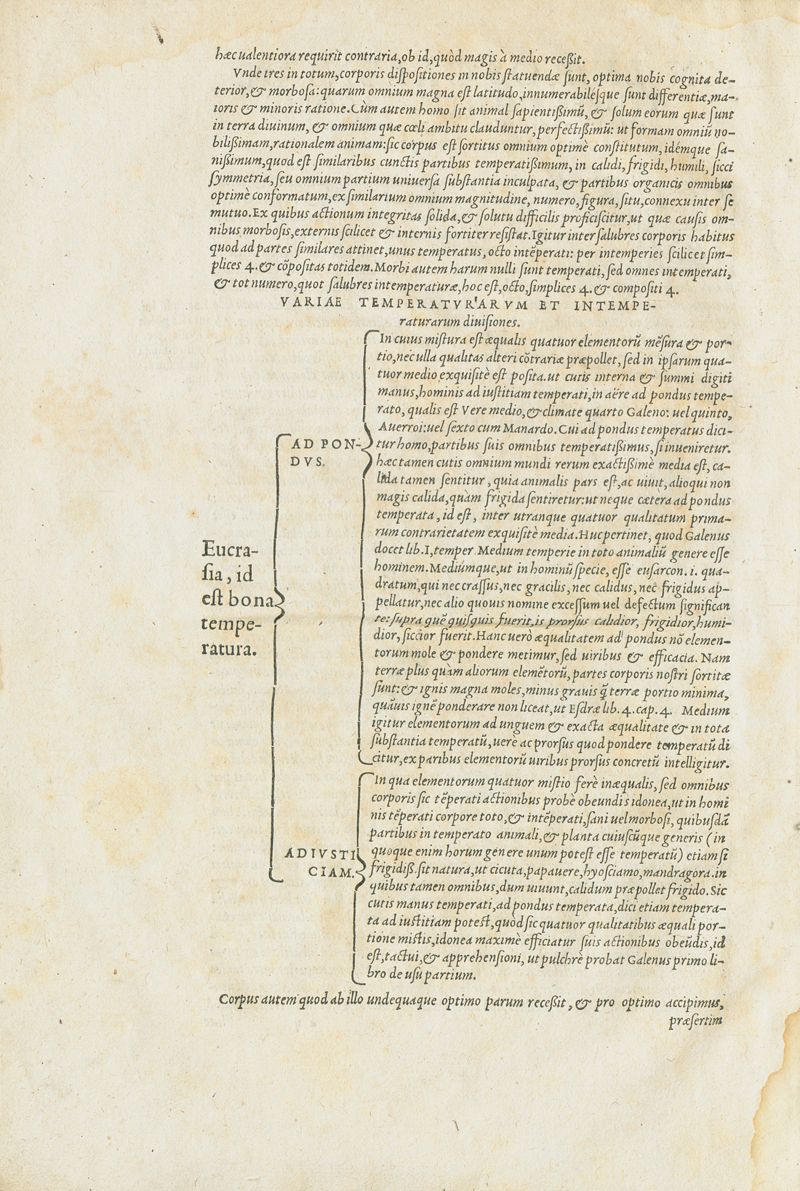 hæc ualentiora requirit contraria, ob id, quòd magis à medio receßit.
Vnde tres in totum, corporis diſpoſitiones in nobis ſtatuendæ ſunt, optima nobis cognita de-
terior, & morboſa: quarum omnium magna eſt latitudo, innumerabiléſque ſunt differentiæ, ma-
ioris & minoris ratione. Cùm autem homo ſit animal ſapientißimũ, & ſolum eorum quæ ſunt
in terra diuinum, & omnium quæ cœli ambitu clauduntur, perfectißimũ: ut formam omniũ no-
bilißimam, rationalem animam: ſic corpus eſt ſortitus omnium optimè conſtitutum, idémque ſa-
nißimum, quod eſt ſimilaribus cunctis partibus temperatißimum, in calidi, frigidi, humili, ſicci
ſymmetria, ſeu omnium partium uniuerſa ſubſtantia inculpata, & partibus organicis omnibus
optimè conformatum, ex ſimilarium omnium magnitudine, numero, figura, ſitu, connexu inter ſe
mutuo. Ex quibus actionum integritas ſolida, & ſolutu difficilis proficiſcitur, ut quæ cauſis om-
nibus morboſis, externis ſcilicet & internis fortiter reſiſtat. Igitur inter ſalubres corporis habitus
quod ad partes ſimilares attinet, unus temperatus, octo intẽperati: per intemperies ſcilicet ſim-
plices 4. & cõpoſitas totidem. Morbi autem harum nulli ſunt temperati, ſed omnes intemperati,
& tot numero, quot ſalubres intemperaturæ, hoc eſt, octo, ſimplices 4. & compoſiti 4.
VARIAE TEMPERATVRARVM ET INTEMPE-
raturarum diuiſiones.
Eucra-
ſia, id
eſt bona
tempe-
ratura.
AD PON-
DVS.
In cuius miſtura eſt æqualis quatuor elementorũ mẽſura & por-
tio, nec ulla qualitas alteri cõtrariæ præpollet, ſed in ipſarum qua-
tuor medio exquiſitè eſt poſita. ut cutis interna & ſummi digiti
manus, hominis ad iuſtitiam temperati, in aëre ad pondus tempe-
rato, qualis eſt Vere medio, & climate quarto Galeno: uel quinto,
Auerroi: uel ſexto cum Manardo. Cui ad pondus temperatus dici-
tur homo, partibus ſuis omnibus temperatißimus, ſi inueniretur.
hæc tamen cutis omnium mundi rerum exactißimè media eſt, ca-
lida tamen ſentitur, quia animalis pars eſt, ac uiuit, alioqui non
magis calida, quàm frigida ſentiretur: ut neque cætera ad pondus
temperata, id eſt, inter utranque quatuor qualitatum prima-
rum contrarietatem exquiſitè media. Huc pertinet, quod Galenus
docet lib. I, temper. Medium temperie in toto animaliũ genere eſſe
hominem. Mediumque, ut in hominũ ſpecie, eſſe euſarcon. i. qua-
dratum, qui nec craſſus, nec gracilis, nec calidus, nec frigidus ap-
pellatur, nec alio quouis nomine exceſſum uel defectum ſignifican
te: ſupra quẽ quiſquis fuerit, is prorſus calidior, frigidior, humi-
dior, ſiccior fuerit. Hanc uerò æqualitatem ad pondus nõ elemen-
torum mole & pondere metimur, ſed uiribus & efficacia. Nam
terræ plus quàm aliorum elemẽtorũ, partes corporis noſtri ſortitæ
ſunt: & ignis magna moles, minus grauis q̃ terræ portio minima,
quãuis ignẽ ponderare non liceat, ut Eſdræ lib. 4. cap. 4. Medium
igitur elementorum ad unguem & exacta æqualitate & in tota
ſubſtantia temperatũ, uere ac prorſus quod pondere temperatũ di
citur, ex paribus elementorũ uiribus prorſus concretũ intelligitur.
AD IVSTI
CIAM.
In qua elementorum quatuor miſtio ferè inæqualis, ſed omnibus
corporis ſic tẽperati actionibus probè obeundis idonea, ut in homi
nis tẽperati corpore toto, & intẽperati, ſani uel morboſi, quibuſdã
partibus in temperato animali, & planta cuiuſcũque generis (in
quoque enim horum genere unum poteſt eſſe temperatũ) etiam ſi
frigidiß. ſit natura, ut cicuta, papauere, hyoſciamo, mandragora. in
quibus tamen omnibus, dum uiuunt, calidum præpollet frigido. Sic
cutis manus temperati, ad pondus temperata, dici etiam tempera-
ta ad iuſtitiam poteſt, quòd ſic quatuor qualitatibus æquali por-
tione miſtis, idonea maximè efficiatur ſuis actionibus obeũdis, id
eſt, tactui, & apprehenſioni, ut pulchrè probat Galenus primo li-
bro de uſu partium.
Corpus autem quod ab illo undequaque optimo parum receßit, & pro optimo accipimus,
præſertim